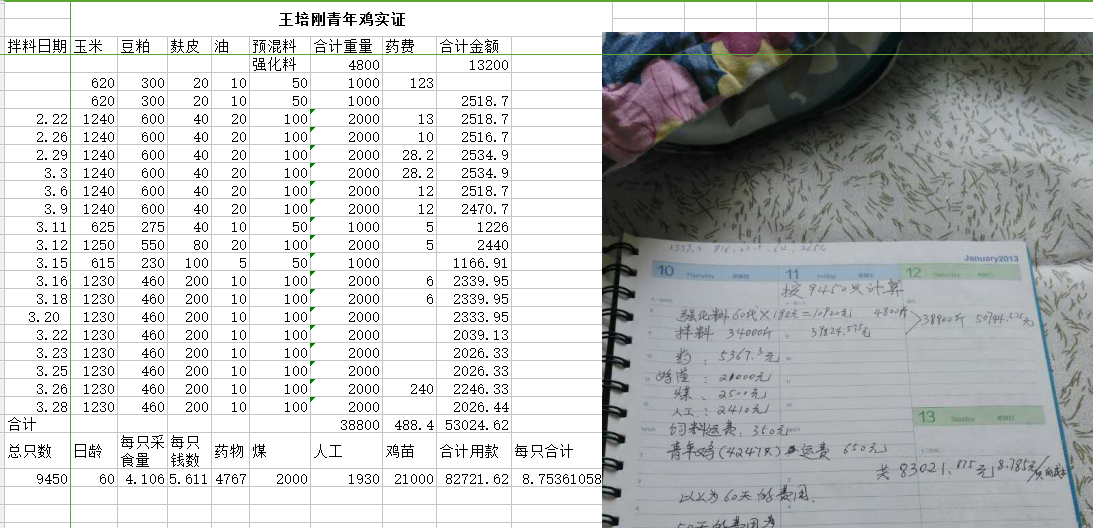 王培刚青年鸡实证
拌料日期 玉米 豆粕 麸皮 油 预混料 合计重量 药费 合计金额
强化料 4800 13200
620 300 20 10 50 1000 123
620 300 20 10 50 1000 2518.7
2.22 1240 600 40 20 100 2000 13 2518.7
2.26 1240 600 40 20 100 2000 10 2516.7
2.29 1240 600 40 20 100 2000 28.2 2534.9
3.3 1240 600 40 20 100 2000 28.2 2534.9
3.6 1240 600 40 20 100 2000 12 2518.7
3.9 1240 600 40 20 100 2000 12 2470.7
3.11 625 275 40 10 50 1000 5 1226
3.12 1250 550 80 20 100 2000 5 2440
3.15 615 230 100 5 50 1000 1166.91
3.16 1230 460 200 10 100 2000 6 2339.95
3.18 1230 460 200 10 100 2000 6 2339.95
3.20 1230 460 200 10 100 2000 2333.95
3.22 1230 460 200 10 100 2000 2039.13
3.23 1230 460 200 10 100 2000 2026.33
3.25 1230 460 200 10 100 2000 2026.33
3.26 1230 460 200 10 100 2000 240 2246.33
3.28 1230 460 200 10 100 2000 2026.44
合计 38800 488.4 53024.62
总只数 日龄 每只采食量 每只钱数 药物 煤 人工 鸡苗 合计用款 每只合计
9450 60 4.106 5.611 4767 2000 1930 21000 82721.62 8.75361058
January2013
10 Thursday 11 Friday 12
按9450只计算
强化料 60代 4800斤
38800斤
拌料 34000斤
药: 5367.3元
鸡苗: 21000元
煤: 2500元
人工: 2410元
13
饲料运费: 350元
青年鸡(4247只) 运费 650元
共 83021.875元 8.785元/
以上为60天的费用.